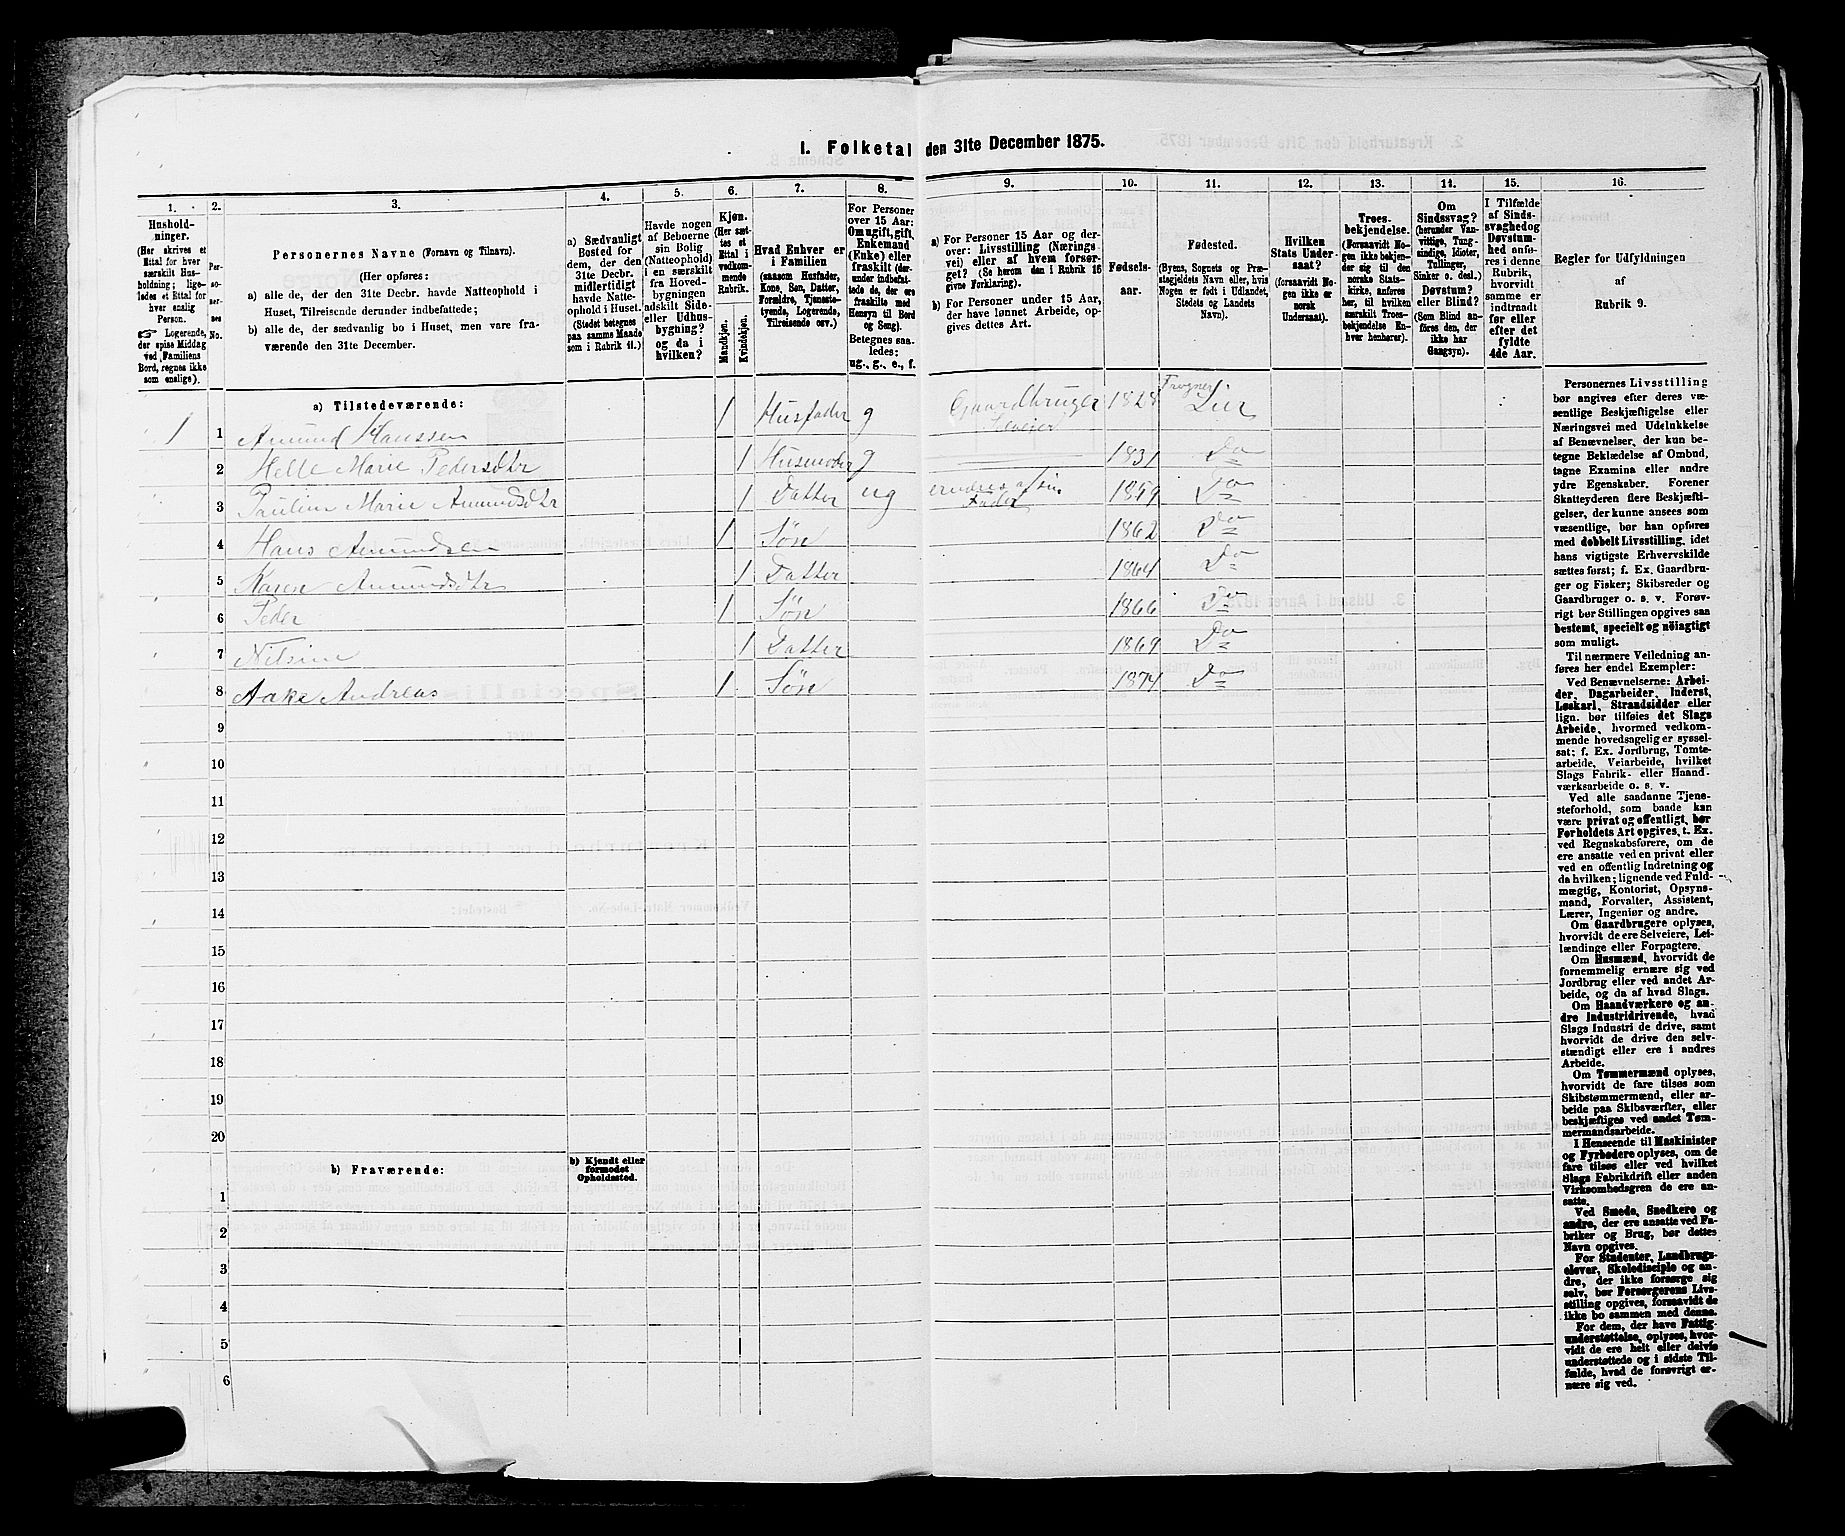 I. Folketal den 31te December 1875.
1. 2. 3. 4. 5. 6. 7. 8. 9. 10. 11. 12. 13. 14. 15. 16.
Husholdninger.
(Her skrives et
Ettal for hver
særskilt Husholdning;
ligeledes
et Ettal for
hver enslig
Person.
☞ Logerende,
der spise Middag
ved Familiens
Bord, regnes ikke
som enslige).
Personernes No.
Personernes Navne (Fornavn og Tilnavn).
(Her opføres:
a) alle de, der den 31te Decbr. havde Natteophold i
Huset, Tilreisende derunder indbefattede;
b) alle de, der sædvanlig bo i Huset, men vare fraværende
den 31te December.
a) Sædvanligt
Bosted for
dem, der den
31te Decbr.
midlertidigt
havde Natteophold
i Huset.
(Stedet betegnes
paa samme Maade
som i Rubrik 11.)
Havde nogen
af Beboerne
sin Bolig
(Natteophold)
i en særskilt
fra Hovedbygningen
adskilt Side-
eller Udhusbygning?
og da i
hvilken?
Kjøn.
(Her sættes
et
Ettal i
vedkommende
Rubrik.
Mandkjøn.
Kvindekjøn.
Hvad Enhver er
i Familien
(saasom Husfader,
Kone, Søn, Datter,
Forældre, Tjenestetyende,
Logerende,
Tilreisende osv.)
For Personer
over 15 Aar:
Om ugift, gift,
Enkemand
(Enke) eller
fraskilt (derunder
indbefattede
de, der ere
fraskilte med
Hensyn til Bord
og Seng).
Betegnes saaledes:
ug., g., e., f.
a) For Personer 15 Aar og derover:
Livsstilling (Næringsvei)
eller af hvem forsørget?
(Se herom den i Rubrik 16
givne Forklaring).
b) For Personer under 15 Aar,
der have lønnet Arbeide, opgives
dettes Art.
Fødselsaar.
Fødested.
(Byens, Sognets og Præstegjeldets
Navn eller, hvis
Nogen er født i Udlandet,
Stedets og Landets
Navn).
Hvilken
Stats Undersaat?
(forsaavidt Nogen
ikke er
norsk
Undersaat).
Troesbekjendelse.
(Forsaavidt Nogen
ikke bekjender
sig til den
norske Statskirke,
anføres
her, til hvilken
særskilt Troesbekjendelse
Enhver
henhører).
Om
Sindssvag?
(herunder Vanvittige,
Tungsindige,
Idioter,
Tullinger,
Sinker o. desl.)
Døvstum?
eller Blind?
(Som Blind anføres
den, der
ikke har
Gangsyn).
I Tilfælde
af Sindssvaghed
og
Døvstumhed
anføres
i denne
Rubrik,
hvorvidt
samme er
indtraadt
før eller
efter det
fyldte
4de Aar.
Regler for Udfyldningen
af
Rubrik 9.
a) Tilstedeværende:
1 1 Amund Hanssen 1 Husfader g Gaardbruger Selveier 1828 Frogner Lier
2 Helle Marie Pedersdtr 1 Husmoder g 1831 Do
3 Pauline Marie Amundsdtr 1 Datter ug ernæres af sin Fader 1859 Do
4 Hans Amundsen 1 Søn 1862 Do
5 Karen Amundsdtr 1 Datter 1864 Do
6 Peder 1 Søn 1866 Do
7 Nilsine 1 Datter 1869 Do
8 Aake Andreas 1 Søn 1874 Do
9
10
11
12
13
14
15
16
17
18
19
20
b) Fraværende:
b) Kjendt eller
formodet
Opholdssted.
1
2
3
4
5
6
Personernes Livsstilling
bør angives efter deres væsentlige
Beskjæftigelse eller
Næringsvei med Udelukkelse
af Benævnelser, der kun betegne
Beklædelse af Ombud,
tagne Examina eller andre
ydre Egenskaber. Forener
Skatteyderen flere Beskjæftigelser,
der kunne ansees som
væsentlige, bør han opføres
med dobbelt Livsstilling, idet
hans vigtigste Erhvervskilde
sættes først; f. Ex. Gaardbruger
og Fisker; Skibsreder og
Gaardbruger o. s. v. Forøvrigt
bør Stillingen opgives saa
bestemt, specielt og nöiagtigt
som muligt.
Til nærmere Veiledning anføres
her endel Exempler:
Ved Benævnelserne: Arbeider,
Dagarbeider, Inderst,
Løskarl, Strandsidder eller
lign. bør tilføies det Slags
Arbeide, hvormed vedkommende
hovedsagelig er sysselsat;
f. Ex. Jordbrug, Tomtearbeide,
Veiarbeide, hvilket
Slags Fabrik- eller Haandværksarbeide
o. s. v.
Ved alle saadanne Tjenesteforhold,
som baade kan
være privat og offentligt, bør
Forholdets Art opgives, t. Ex.
ved Regnskabsførere, om de
ere ansatte ved en privat eller
ved en offentlig Indretning og
da hvilken; lignende ved Fuldmægtig,
Kontorist, Opsynsmand,
Forvalter, Assistent,
Lærer, Ingeniør og andre.
Om Gaardbrugere oplyses,
hvorvidt de ere Selveiere, Leilændinge
eller Forpagtere.
Om Husmænd, hvorvidt de
fornemmelig ernære sig ved
Jordbrug eller ved andet Arbeide,
og da af hvad Slags.
Om Haandværkere og andre
Industridrivende, hvad
Slags Industri de drive, samt
hvorvidt de drive den selvstændigt
eller ere i andres
Arbeide.
Om Tømmermænd oplyses,
hvorvidt de fare tilsøs som
Skibstømmermænd, eller arbeide
paa Skibsværfter, eller
beskjæftiges ved andet Tømmermandsarbeide.
I Henseende til Maskinister
og Fyrbødere oplyses, om de
fare tilsøs eller ved hvilket
Slags Fabrikdrift eller anden
Virksomhedsgren de ere ansatte.
Ved Smede, Snedkere og
andre, der ere ansatte ved Fabriker
og Brug, bør dettes
Navn opgives.
For Studenter, Landbrugselever,
Skoledisciple og andre,
der ikke forsørge sig
selv, bør Forsørgerens Livsstilling
opgives, forsaavidt de
ikke bo sammen med denne.
For dem, der have Fattigunderstøttelse,
oplyses, hvorvidt
de ere helt eller delvis
understøttede og i sidste Tilfælde,
hvad de forøvrigt ernære
sig ved.